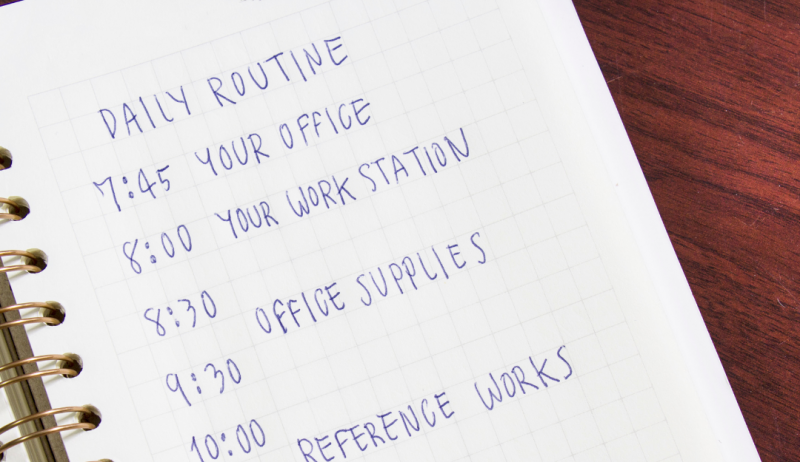 DAILY ROUTINE
7:45 YOUR OFFICE
8:00 YOUR WORK STATION
8:30 OFFICE SUPPLIES
9:30
10:00 REFERENCE WORKS